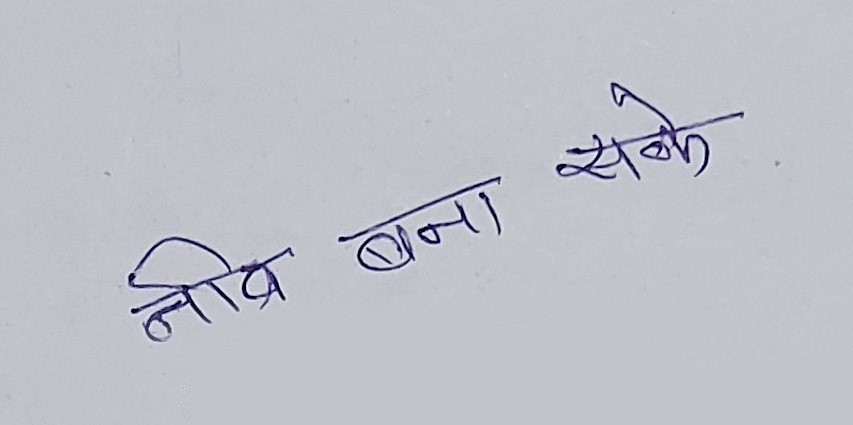 नीव बना सके